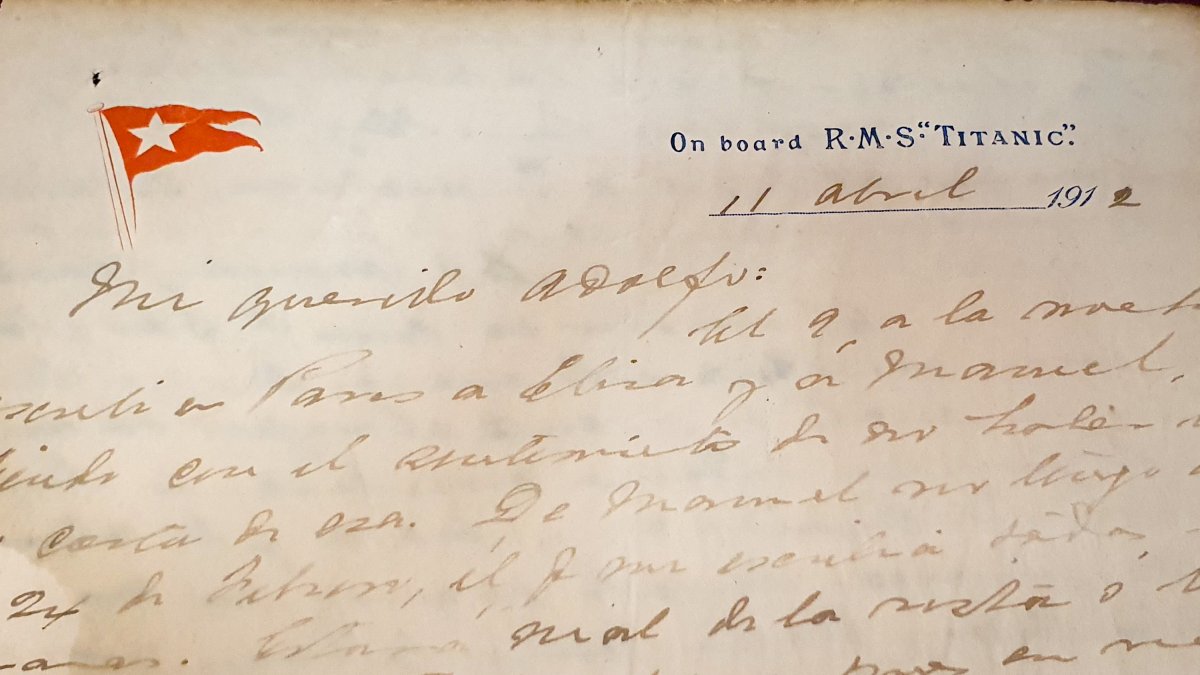 On board R·M·S·"TITANIC".
11 abril 1912
Mi querido Adolfo:
El 9, a la noche
escribi a Paris a Elisa y á Manuel,
con el sentimiento de no haber
carta de esa. De Manuel no tengo
24 de Febrero, él q me escribia todas
Estará mal de la vista ó
pues en